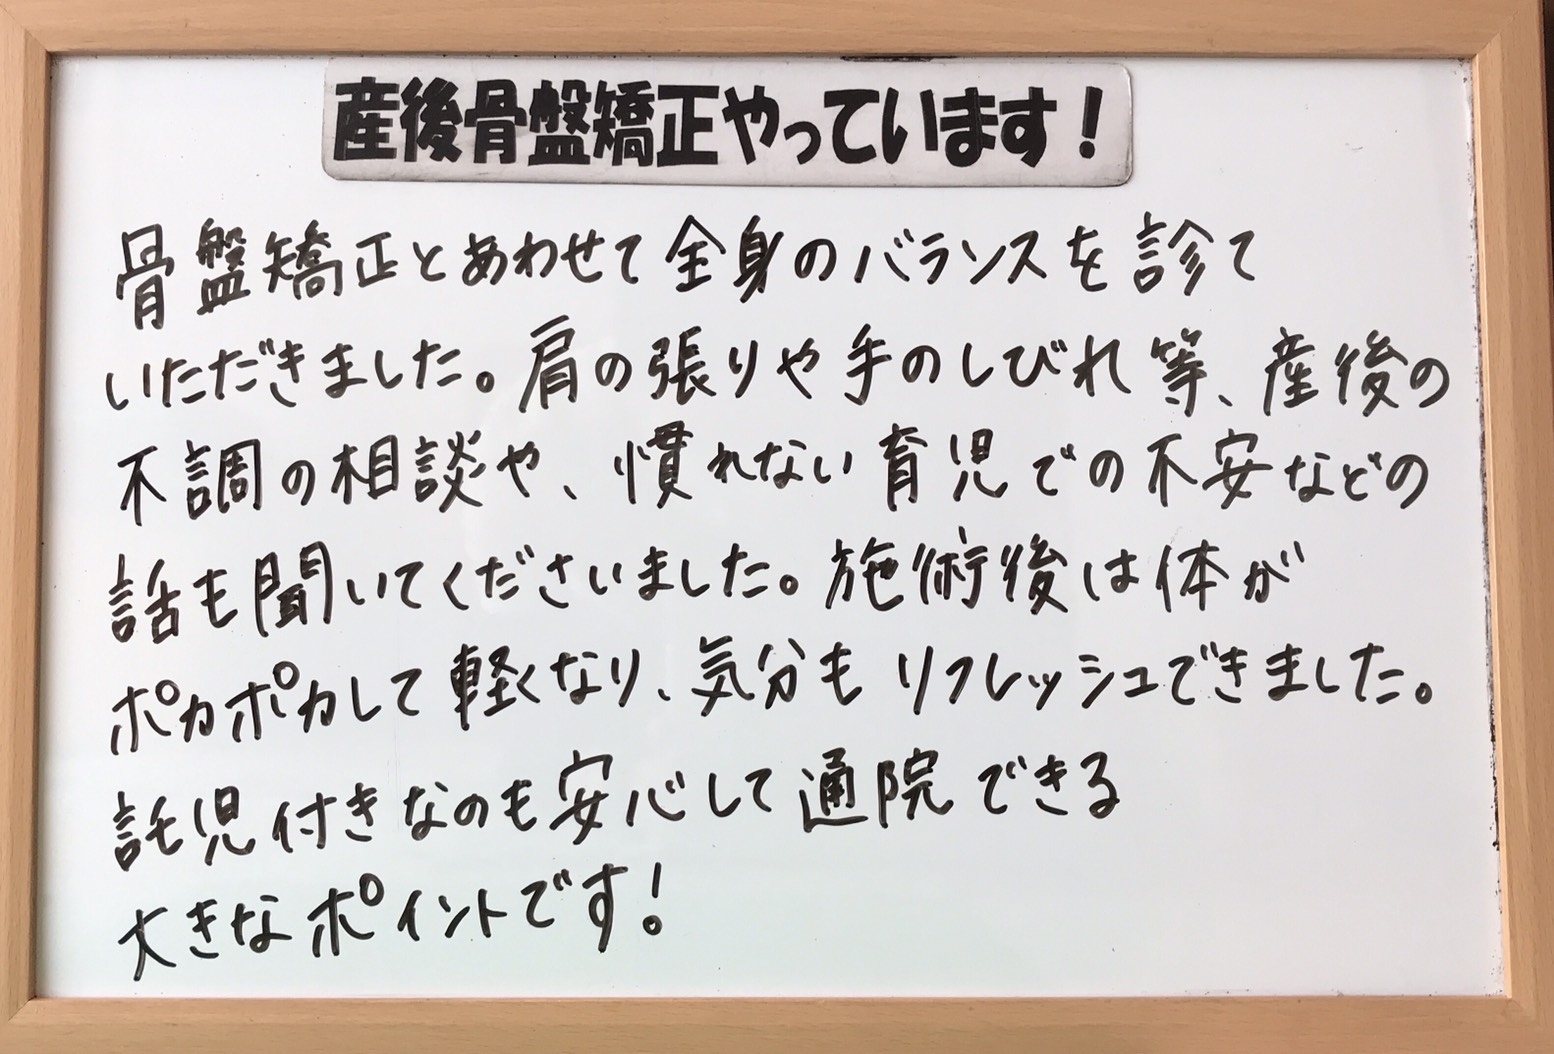 産後骨盤矯正やっています！
骨盤矯正とあわせて全身のバランスを診て
いただきました。肩の張りや手のしびれ等、産後の
不調の相談や、慣れない育児での不安などの
話も聞いてくださいました。施術後は体が
ポカポカして軽くなり、気分もリフレッシュできました。
託児付きなのも安心して通院できる
大きなポイントです！